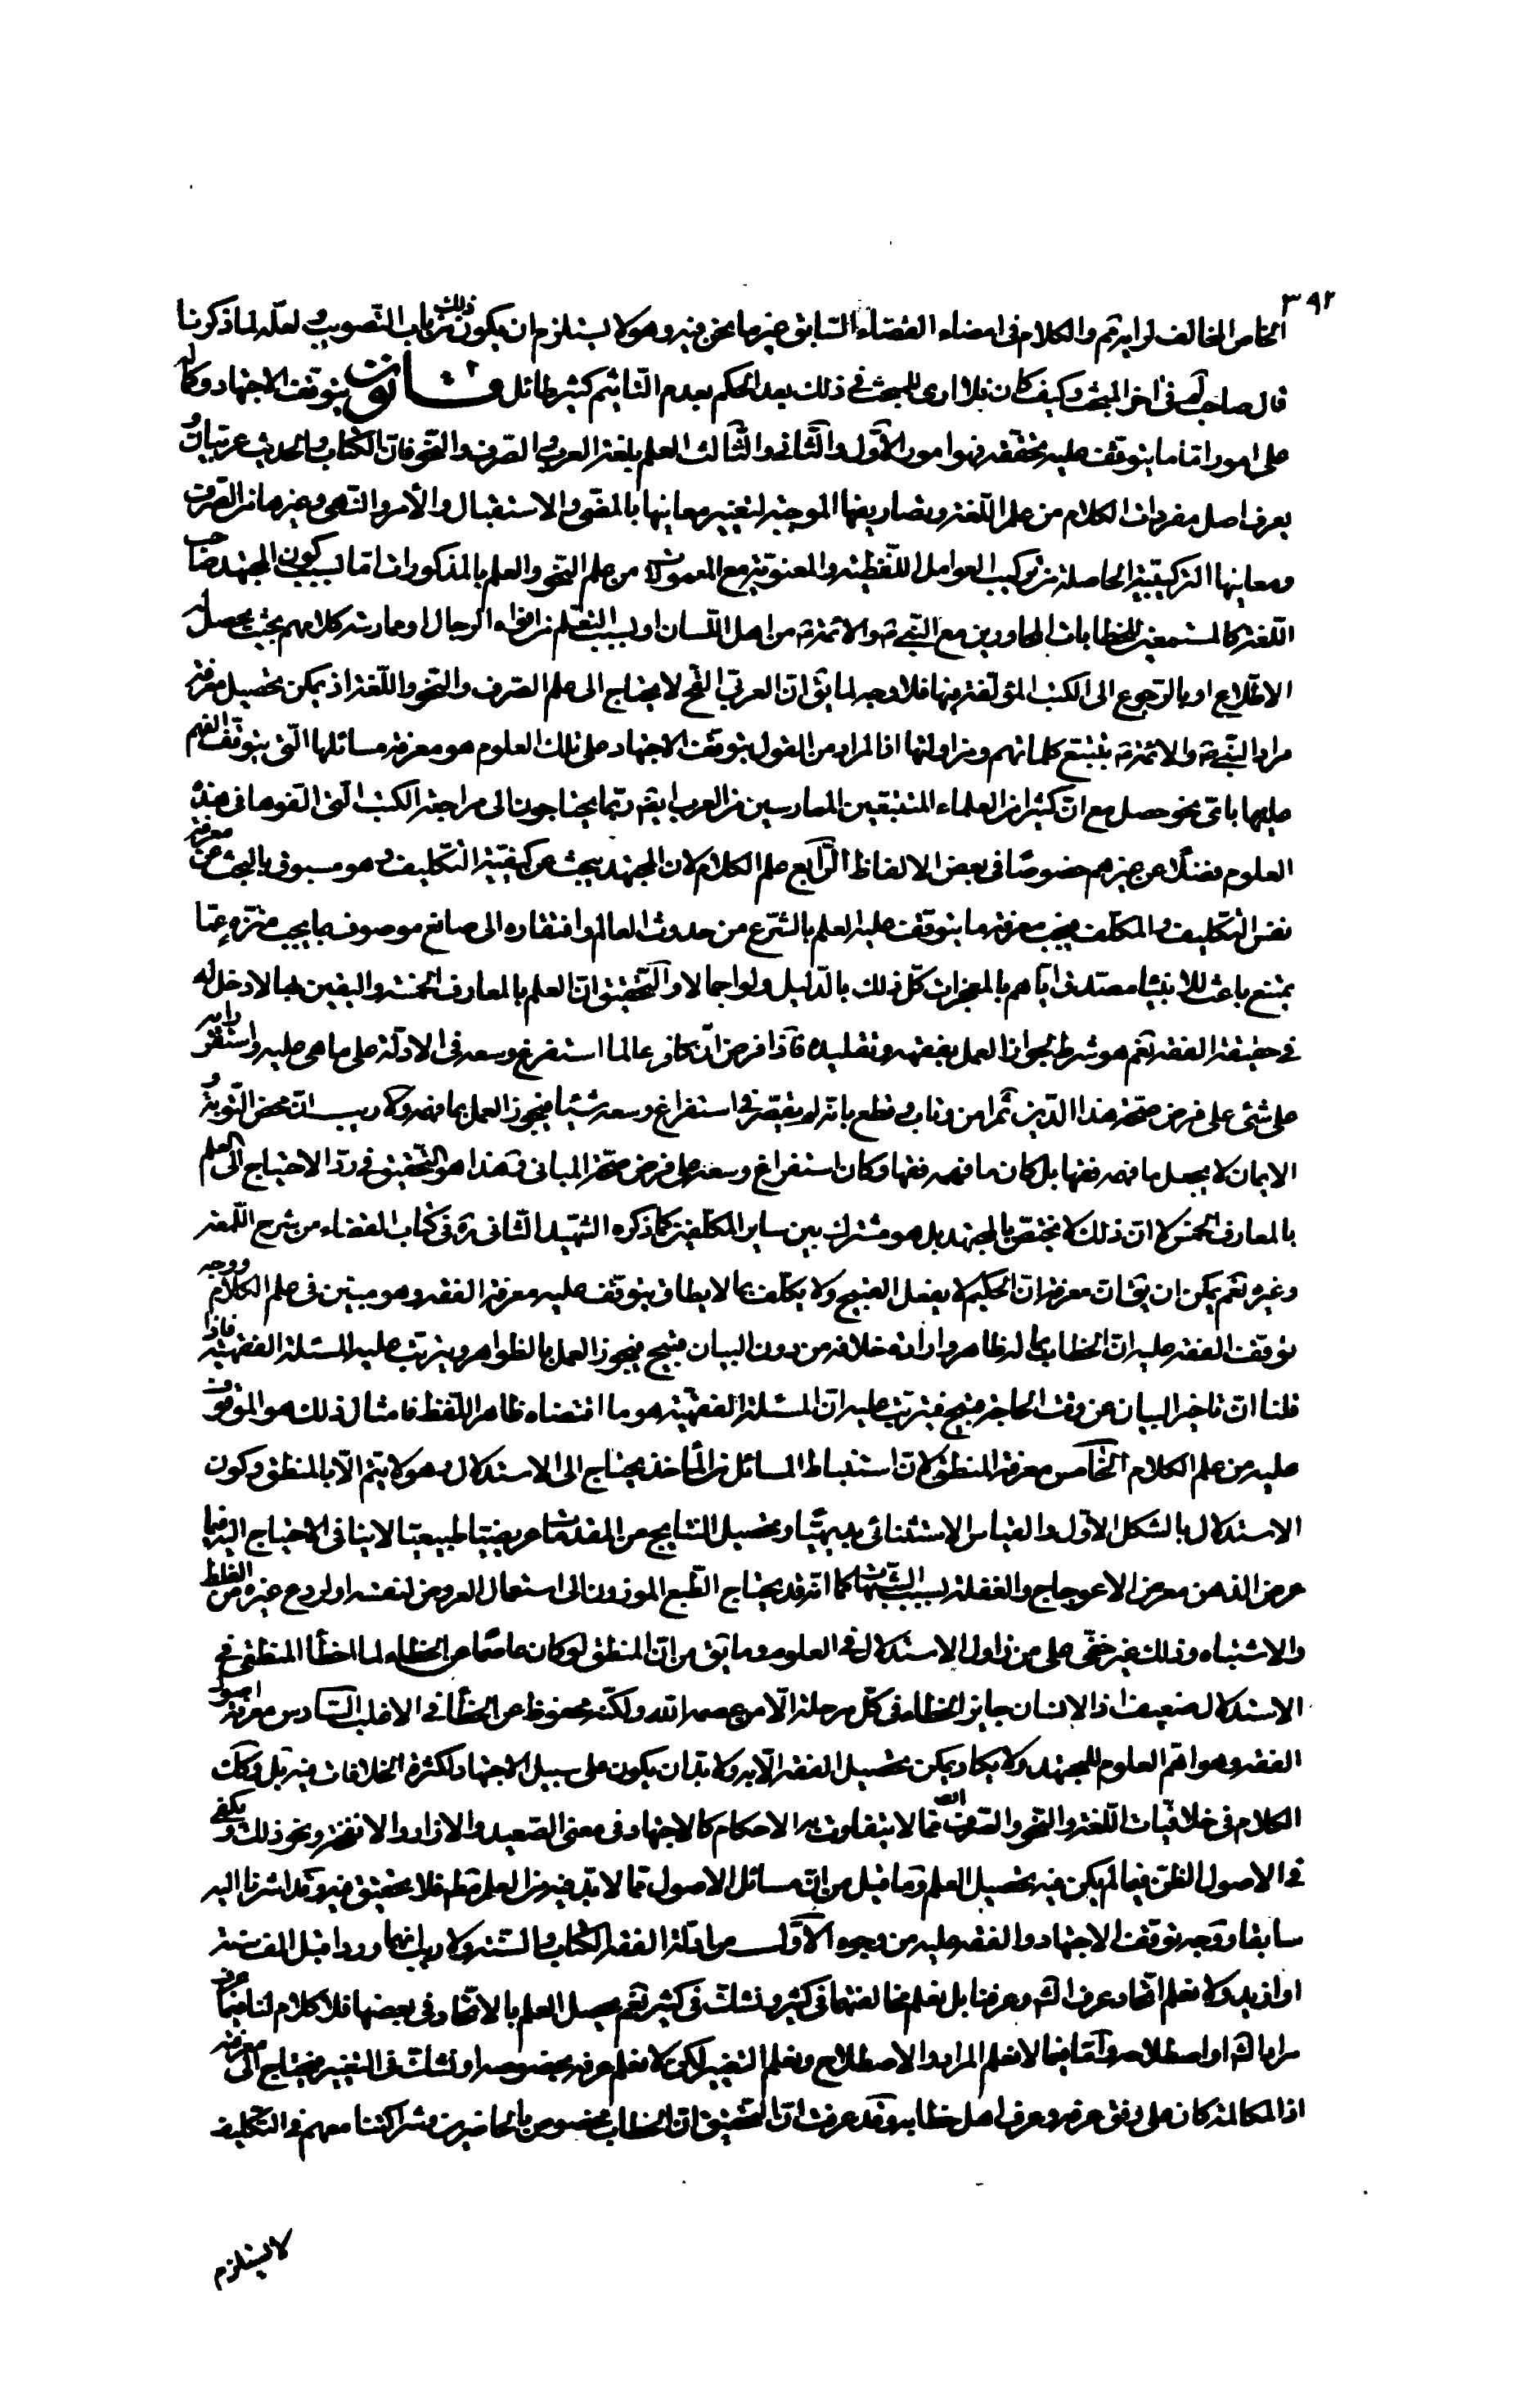 ٣٩٢
الخاص المخالف لرايه ثم والكلام فى امضاء القضاء السابق غير ما نحن فيه وهو لا يستلزم ان يكون ذلك من باب التصويب ولعله لما ذكرنا
قال صاحب لم فى اخر المبحث وكيف كان فلا ارى للبحث فى ذلك بعد الحكم بعدم التاثيم كثير طائل قانون يتوقف الاجتهاد وكماله
على امور اما ما يتوقف عليه تحققه فهو امور الاول والثانى والثالث العلم بلغة العرب والصرف والنحو فان الكتاب والحديث عربيان و
يعرف اصل مفردات الكلام من علم اللغة وتصاريفها الموجبة لتغيير معانيها بالمضى والاستقبال والامر والنهى وغيرها من الصرف
ومعانيها التركيبية الحاصلة من تركيب العوامل اللفظية والمعنوية مع المعمولات من علم النحو والعلم بالمذكورات اما بسبب كون المجتهد صاحب
اللغة كالمستمعين للخطابات المحاورين مع النبى ص والائمة ع من اهل اللسان او بسبب التعلم من افواه الرجال او ممارسة كلامهم بحيث يحصل له
الاطلاع او بالرجوع الى الكتب المؤلفة فيها فلا وجه لما يق ان العربى القح لا يحتاج الى علم الصرف والنحو واللغة اذ يمكن تحصيل معرفة
مراد النبى ص والائمة ع بتتبع كلماتهم ومزاولتها اذ المراد من القول بتوقف الاجتهاد على تلك العلوم هو معرفة مسائلها التى يتوقف الفهم
عليها باى نحو حصل مع ان كثيرا من العلماء المتتبعين الممارسين من العرب ايضا ربما يحتاجون الى مراجعة الكتب التى الفوها فى هذه
العلوم فضلا عن غيرهم خصوصا فى بعض الالفاظ الرابع علم الكلام لان المجتهد يبحث عن كيفية التكليف وهو مسبوق بالبحث عن معرفة
نفس التكليف والمكلف فيجب معرفة ما يتوقف عليه العلم بالشرع من حدوث العالم وافتقاره الى صانع موصوف بما يجب منزه عما
يمتنع باعث للانبياء مصدق اياهم بالمعجزات كل ذلك بالدليل ولو اجمالا والتحقيق ان العلم بالمعارف الخمسة واليقين بها لا دخل له
فى حقيقة الفقه نعم هو شرط لجواز العمل بفقهه وتقليده فاذا فرض ان كافرا عالما استفرغ وسعه فى الادلة على ما هى عليه واستقر رايه
على شئ على فرض صحة هذا الدين ثم امن وتاب وقطع بانه لم يقصر فى استفراغ وسعه شيئا فيجوز العمل بما فهمه ولا ريب ان محض التوبة و
الايمان لا يجعل ما فهمه فقها بل كان ما فهمه فقها وكان استفراغ وسعه على فرض صحة المبانى فهذا هو التحقيق فى رد الاحتياج الى العلم
بالمعارف الخمس لا ان ذلك لا يختص بالمجتهد بل هو مشترك بين ساير المكلفين كما ذكره الشهيد الثانى ره فى كتاب القضاء من شرح اللمعة
وغيره نعم يمكن ان يق ان معرفة ان الحكيم لا يفعل القبيح ولا يكلف بما لا يطاق يتوقف عليه معرفة الفقه وهو مبين فى علم الكلام ووجه
توقف الفقه عليه ان الخطاب بما له ظاهر وارادة خلافه من دون البيان قبيح فيجوز العمل بالظواهر ويترتب عليه المسئلة الفقهية فاذا
قلنا ان تاخير البيان عن وقت الحاجة قبيح فيترتب عليه ان المسئلة الفقهية هو ما اقتضاه ظاهر اللفظ فامثال ذلك هو الموقوف
عليه من علم الكلام الخامس معرفة المنطق لان استنباط المسائل من المأخذ يحتاج الى الاستدلال وهو لا يتم الا بالمنطق وكون
الاستدلال بالشكل الاول والقياس الاستثنائى بديهيا وتحصيل النتايج عن المقدمات غريضيا طبيعيا لا ينافى الاحتياج اليه فيما
عرض الذهن معرض الاعوجاج والغفلة لسبب الشبهات كما انه قد يحتاج الطبع الموزون الى استعمال العروض لنفسه او لردع غيره من الغلط
والاشتباه وذلك غير خفى على من زاول الاستدلال فى العلوم وما يق من ان المنطق لو كان عاصما عن الخطاء لما اخطأ المنطقى فى
الاستدلال ضعيف اذ الانسان جايز الخطاء فى كل مرحلة الا من عصمه الله ولكنه محفوظ عن الخطأ فى الاغلب السادس معرفة اصول
الفقه وهو اهم العلوم للمجتهد ولا يكاد يمكن تحصيل الفقه الا به ولا بد ان يكون على سبيل الاجتهاد لكثرة الخلافات فيه بل وكك
الكلام فى خلافيات اللغة والنحو والصرف ايضا مما لا يتفاوت به الاحكام كالاجتهاد فى معنى الصعيد والازار والانفحة ونحو ذلك ويكفى
فى الاصول الظن فيما لم يمكن فيه تحصيل العلم وما قيل من ان مسائل الاصول مما لا بد فيه من العلم مطم فلا تحقيق فيه وقد اشرنا اليه
سابقا ووجه توقف الاجتهاد والفقه عليه من وجوه الاول من ادلة الفقه الكتاب والسنة ولا ريب انهما وردا قبل الف سنة
او ازيد ولا نعلم اتحاد عرف الش وعرفنا بل نعلم مخالفتهما فى كثير ونشك فى كثير نعم يحصل العلم بالاتحاد فى بعضها فلا كلام لنا فيما عرف
مراد الش او اصطلاحه واما فيما لا نعلم المراد والاصطلاح ونعلم التغيير لكن لا نعلم عرفه بخصوصه او نشك فى التغيير فيحتاج الى معرفته
اذ المكالمة كان على وفق عرفه وعرف اهل خطابه وقد عرفت ان التحقيق ان الخطاب مخصوص بالحاضرين ومشاركتنا معهم فى التكليف
لا يستلزم